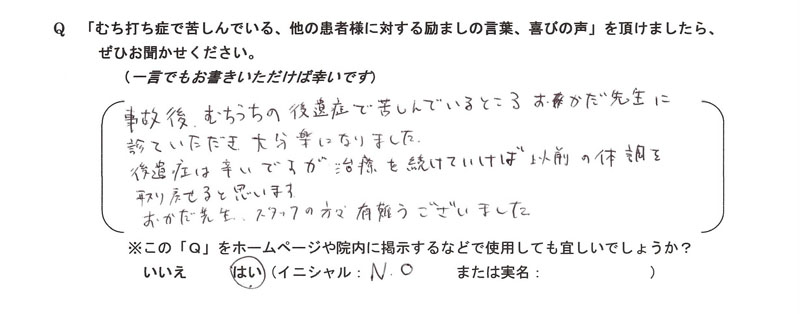 Q 「むち打ち症で苦しんでいる、他の患者様に対する励ましの言葉、喜びの声」を頂けましたら、
ぜひお聞かせください。
(一言でもお書きいただけば幸いです)
事故後、むちうちの後遺症で苦しんでいるところ おかだ先生に
診ていただき 大分楽になりました。
後遺症は辛いですが治療を続けていけば以前の体調を
取り戻せると思います
おかだ先生、スタッフの方々 有難うございました
※この「Q」をホームページや院内に掲示するなどで使用しても宜しいでしょうか?
いいえ はい (イニシャル: N.O または実名: )